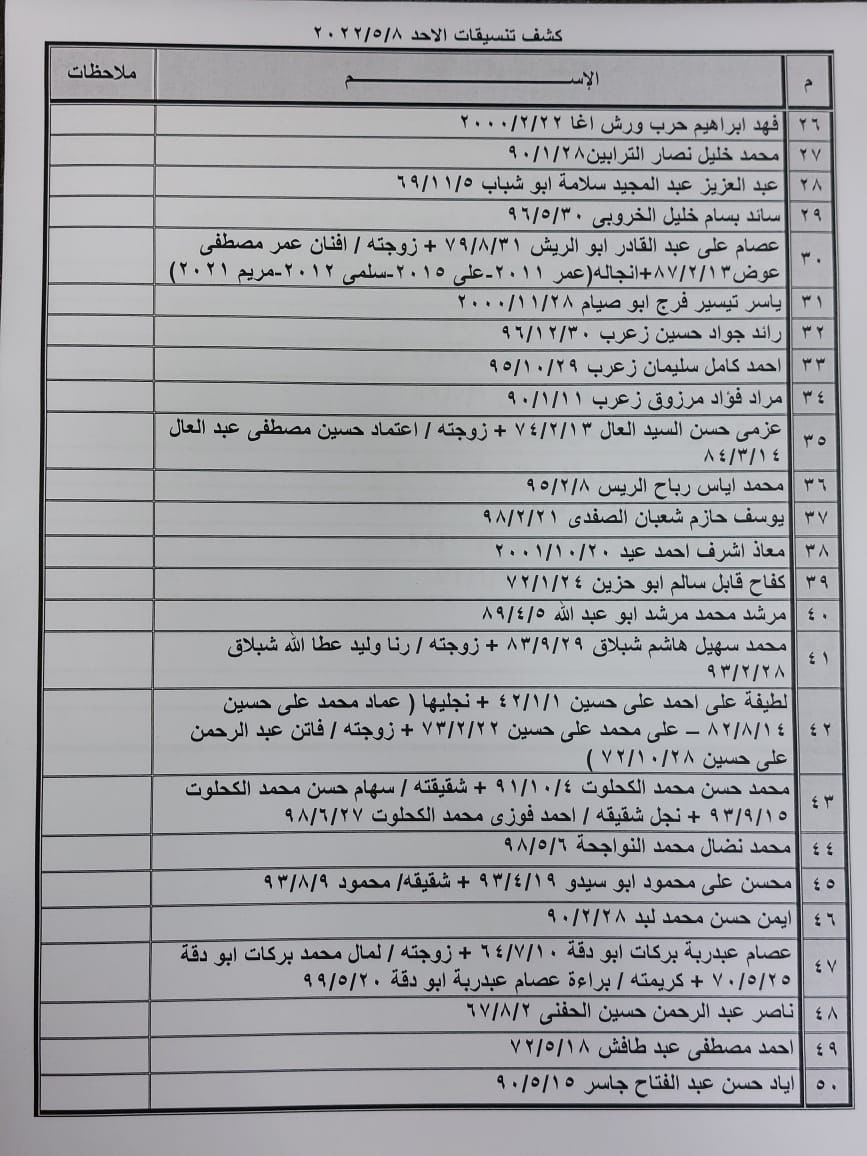 كشف تنسيقات الاحد ٢٠٢٢/٥/٨
م الإســـــم ملاحظات
٢٦ فهد ابراهيم حرب ورش اغا ٢٠٠٠/٢/٢٢
٢٧ محمد خليل نصار الترابين٩٠/١/٢٨
٢٨ عبد العزيز عبد المجيد سلامة ابو شباب ٦٩/١١/٥
٢٩ سائد بسام خليل الخروبى ٩٦/٥/٣٠
٣٠ عصام على عبد القادر ابو الريش ٧٩/٨/٣١ + زوجته / افنان عمر مصطفى
عوض٨٧/٢/١٣+انجاله(عمر ٢٠١١-على ٢٠١٥-سلمى ٢٠١٢-مريم ٢٠٢١)
٣١ ياسر تيسير فرج ابو صيام ٢٠٠٠/١١/٢٨
٣٢ رائد جواد حسين زعرب ٩٦/١٢/٣٠
٣٣ احمد كامل سليمان زعرب ٩٥/١٠/٢٩
٣٤ مراد فؤاد مرزوق زعرب ٩٠/١/١١
٣٥ عزمى حسن السيد العال ٧٤/٢/١٣ + زوجته / اعتماد حسين مصطفى عبد العال
٨٤/٣/١٤
٣٦ محمد اياس رباح الريس ٩٥/٢/٨
٣٧ يوسف حازم شعبان الصفدى ٩٨/٢/٢١
٣٨ معاذ اشرف احمد عيد ٢٠٠١/١٠/٢٠
٣٩ كفاح قابل سالم ابو حزين ٧٢/١/٢٤
٤٠ مرشد محمد مرشد ابو عبد الله ٨٩/٤/٥
٤١ محمد سهيل هاشم شبلاق ٨٣/٩/٢٩ + زوجته / رنا وليد عطا الله شبلاق
٩٣/٢/٢٨
٤٢ لطيفة على احمد على حسين ٤٢/١/١ + نجليها ( عماد محمد على حسين
٨٢/٨/١٤ – على محمد على حسين ٧٣/٢/٢٢ + زوجته / فاتن عبد الرحمن
على حسين ٧٢/١٠/٢٨ )
٤٣ محمد حسن محمد الكحلوت ٩١/١٠/٤ + شقيقته / سهام حسن محمد الكحلوت
٩٣/٩/١٥ + نجل شقيقه / احمد فوزى محمد الكحلوت ٩٨/٦/٢٧
٤٤ محمد نضال محمد النواجحة ٩٨/٥/٦
٤٥ محسن على محمود ابو سيدو ٩٣/٤/١٩ + شقيقه/ محمود ٩٣/٨/٩
٤٦ ايمن حسن محمد لبد ٩٠/٢/٢٨
٤٧ عصام عبدربة بركات ابو دقة ٦٤/٧/١٠ + زوجته / لمال محمد بركات ابو دقة
٧٠/٥/٢٥ + كريمته / براءة عصام عبدربة ابو دقة ٩٩/٥/٢٠
٤٨ ناصر عبد الرحمن حسين الحفنى ٦٧/٨/٢
٤٩ احمد مصطفى عبد طافش ٧٢/٥/١٨
٥٠ اياد حسن عبد الفتاح جاسر ٩٠/٥/١٥